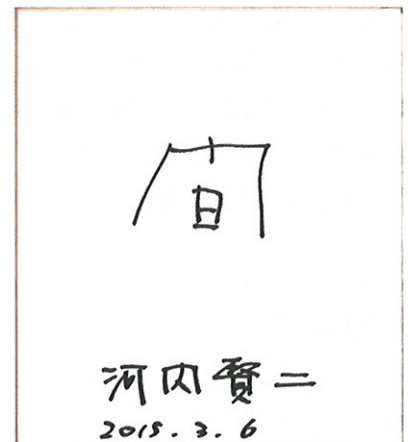 间
河内賢二
2015.3.6